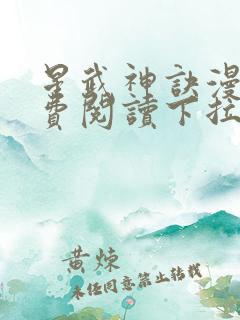 星武神訣漫
費閱讀下拉
黄炼
未经同意禁止转载